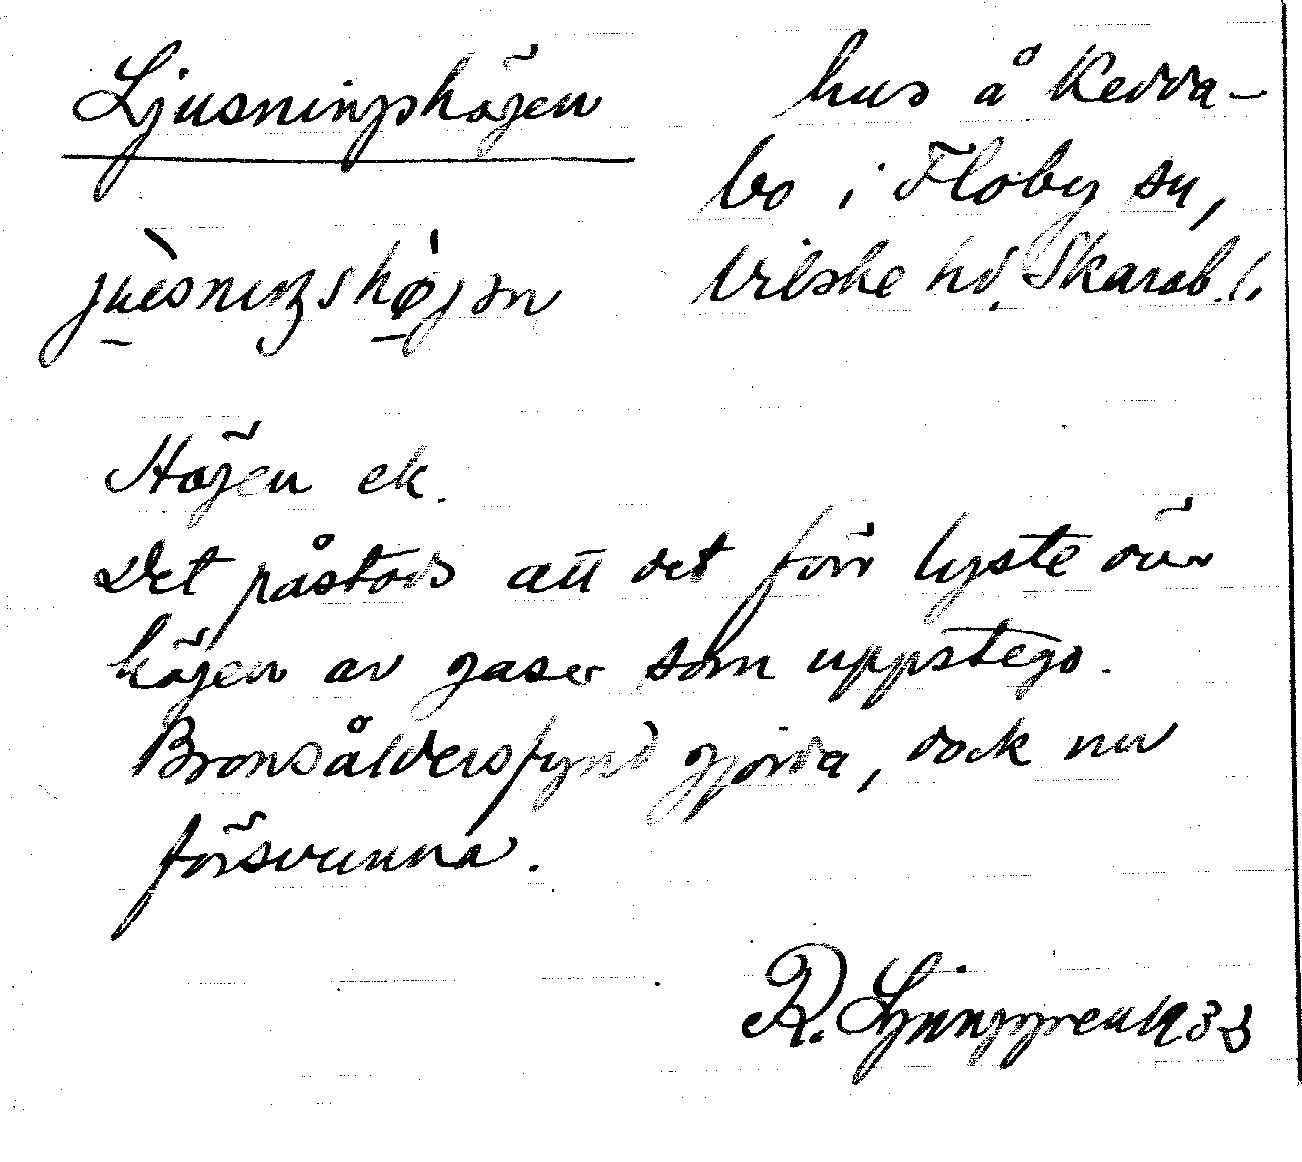 Ljusningshögen
hus å Kedda-
bo i Floby sn,
Vilske hd. Skarab. l.
Högen ek.
Det påstods att det förr lyste över
högen av gaser som uppstego.
Bronsåldersfynd gjorda, dock nu
försvunna.
R. Ljunggren 1933